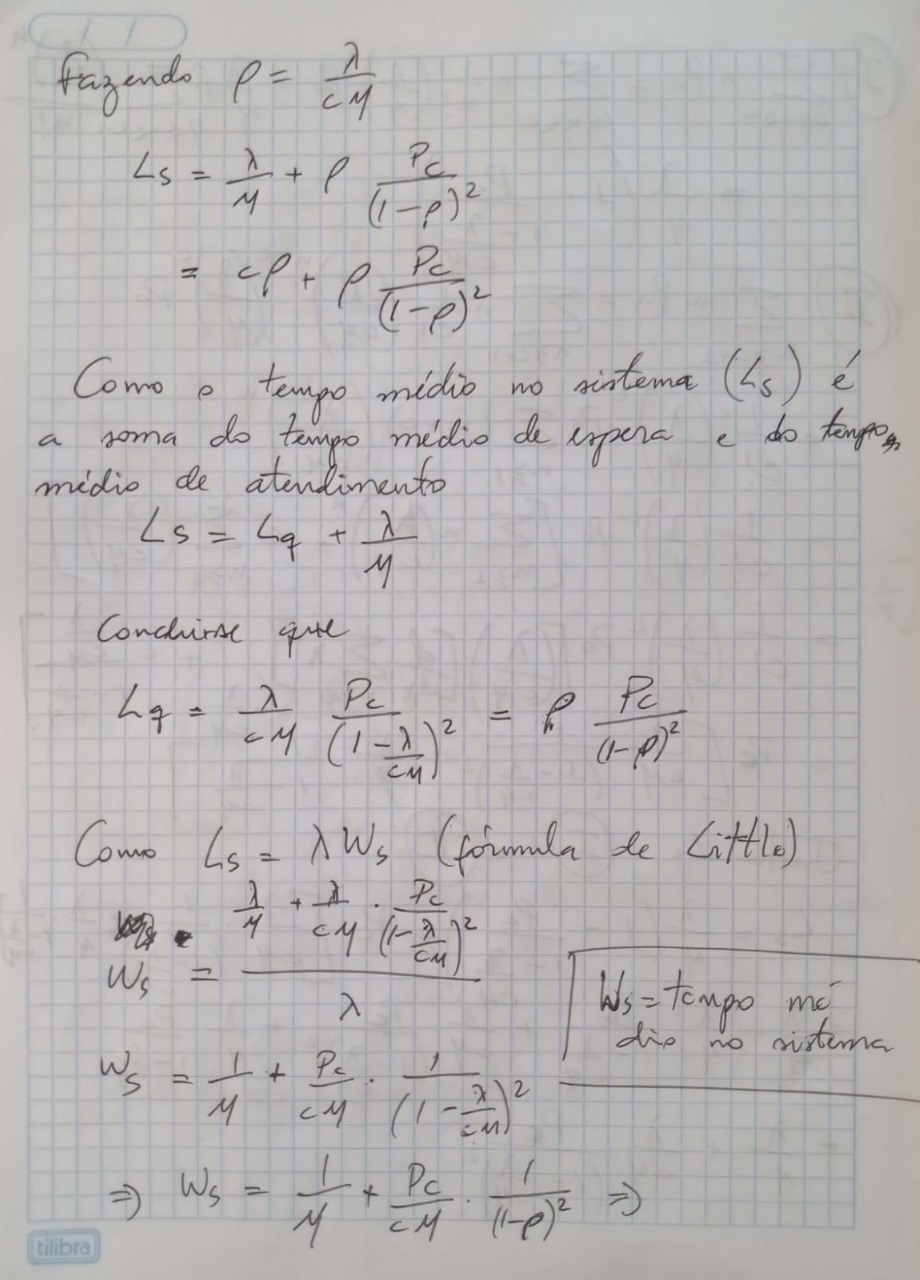 fazendo ρ = λ/cμ
Ls = λ/μ + ρ Pc/(1-ρ)²
= cρ + ρ Pc/(1-ρ)²
Como o tempo médio no sistema (Ls) é
a soma do tempo médio de espera e do tempo
médio de atendimento
Ls = Lq + λ/μ
Lq = λ/cμ Pc/(1-λ/cμ)² = ρ Pc/(1-ρ)²
Como Ls = λWs (fórmula de Little)
Ws = (λ/μ + λ/cμ · Pc/(1-λ/cμ)²)/λ
Ws = tempo mé
dio no sistema
Ws = 1/μ + Pc/cμ · 1/(1-λ/cμ)²
⇒ Ws = 1/μ + Pc/cμ · 1/(1-ρ)² ⇒
tilibra